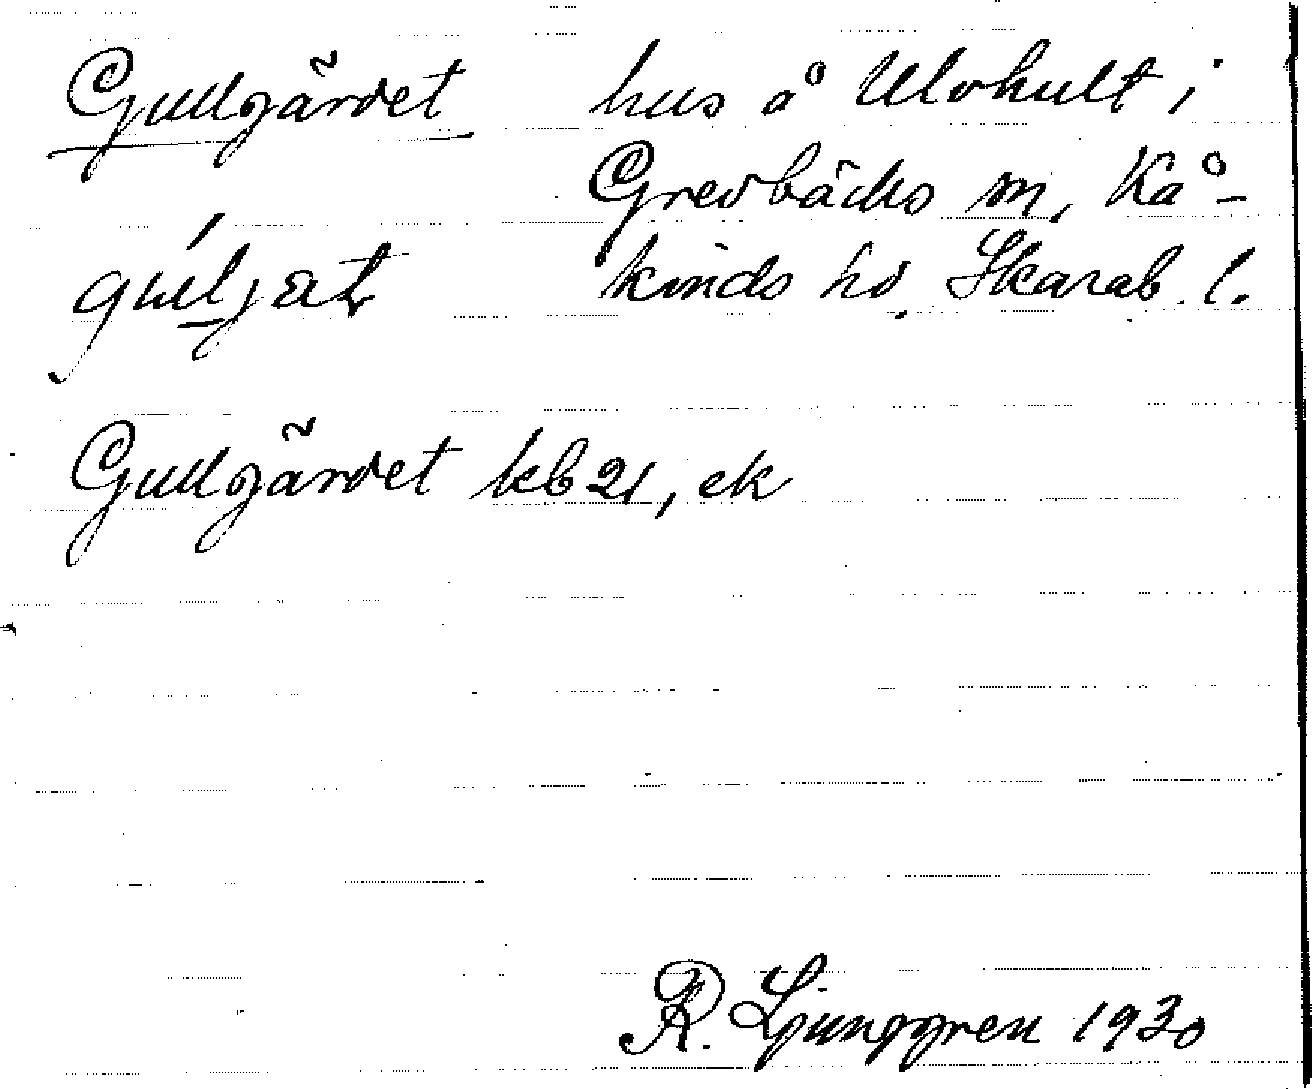 Gullgärdet hus å Ulvhult i
Grevbäcks sn, Kå-
kinds hd, Skarab. l.
Gullgärdet kb 21, ek
R. Ljunggren 1930